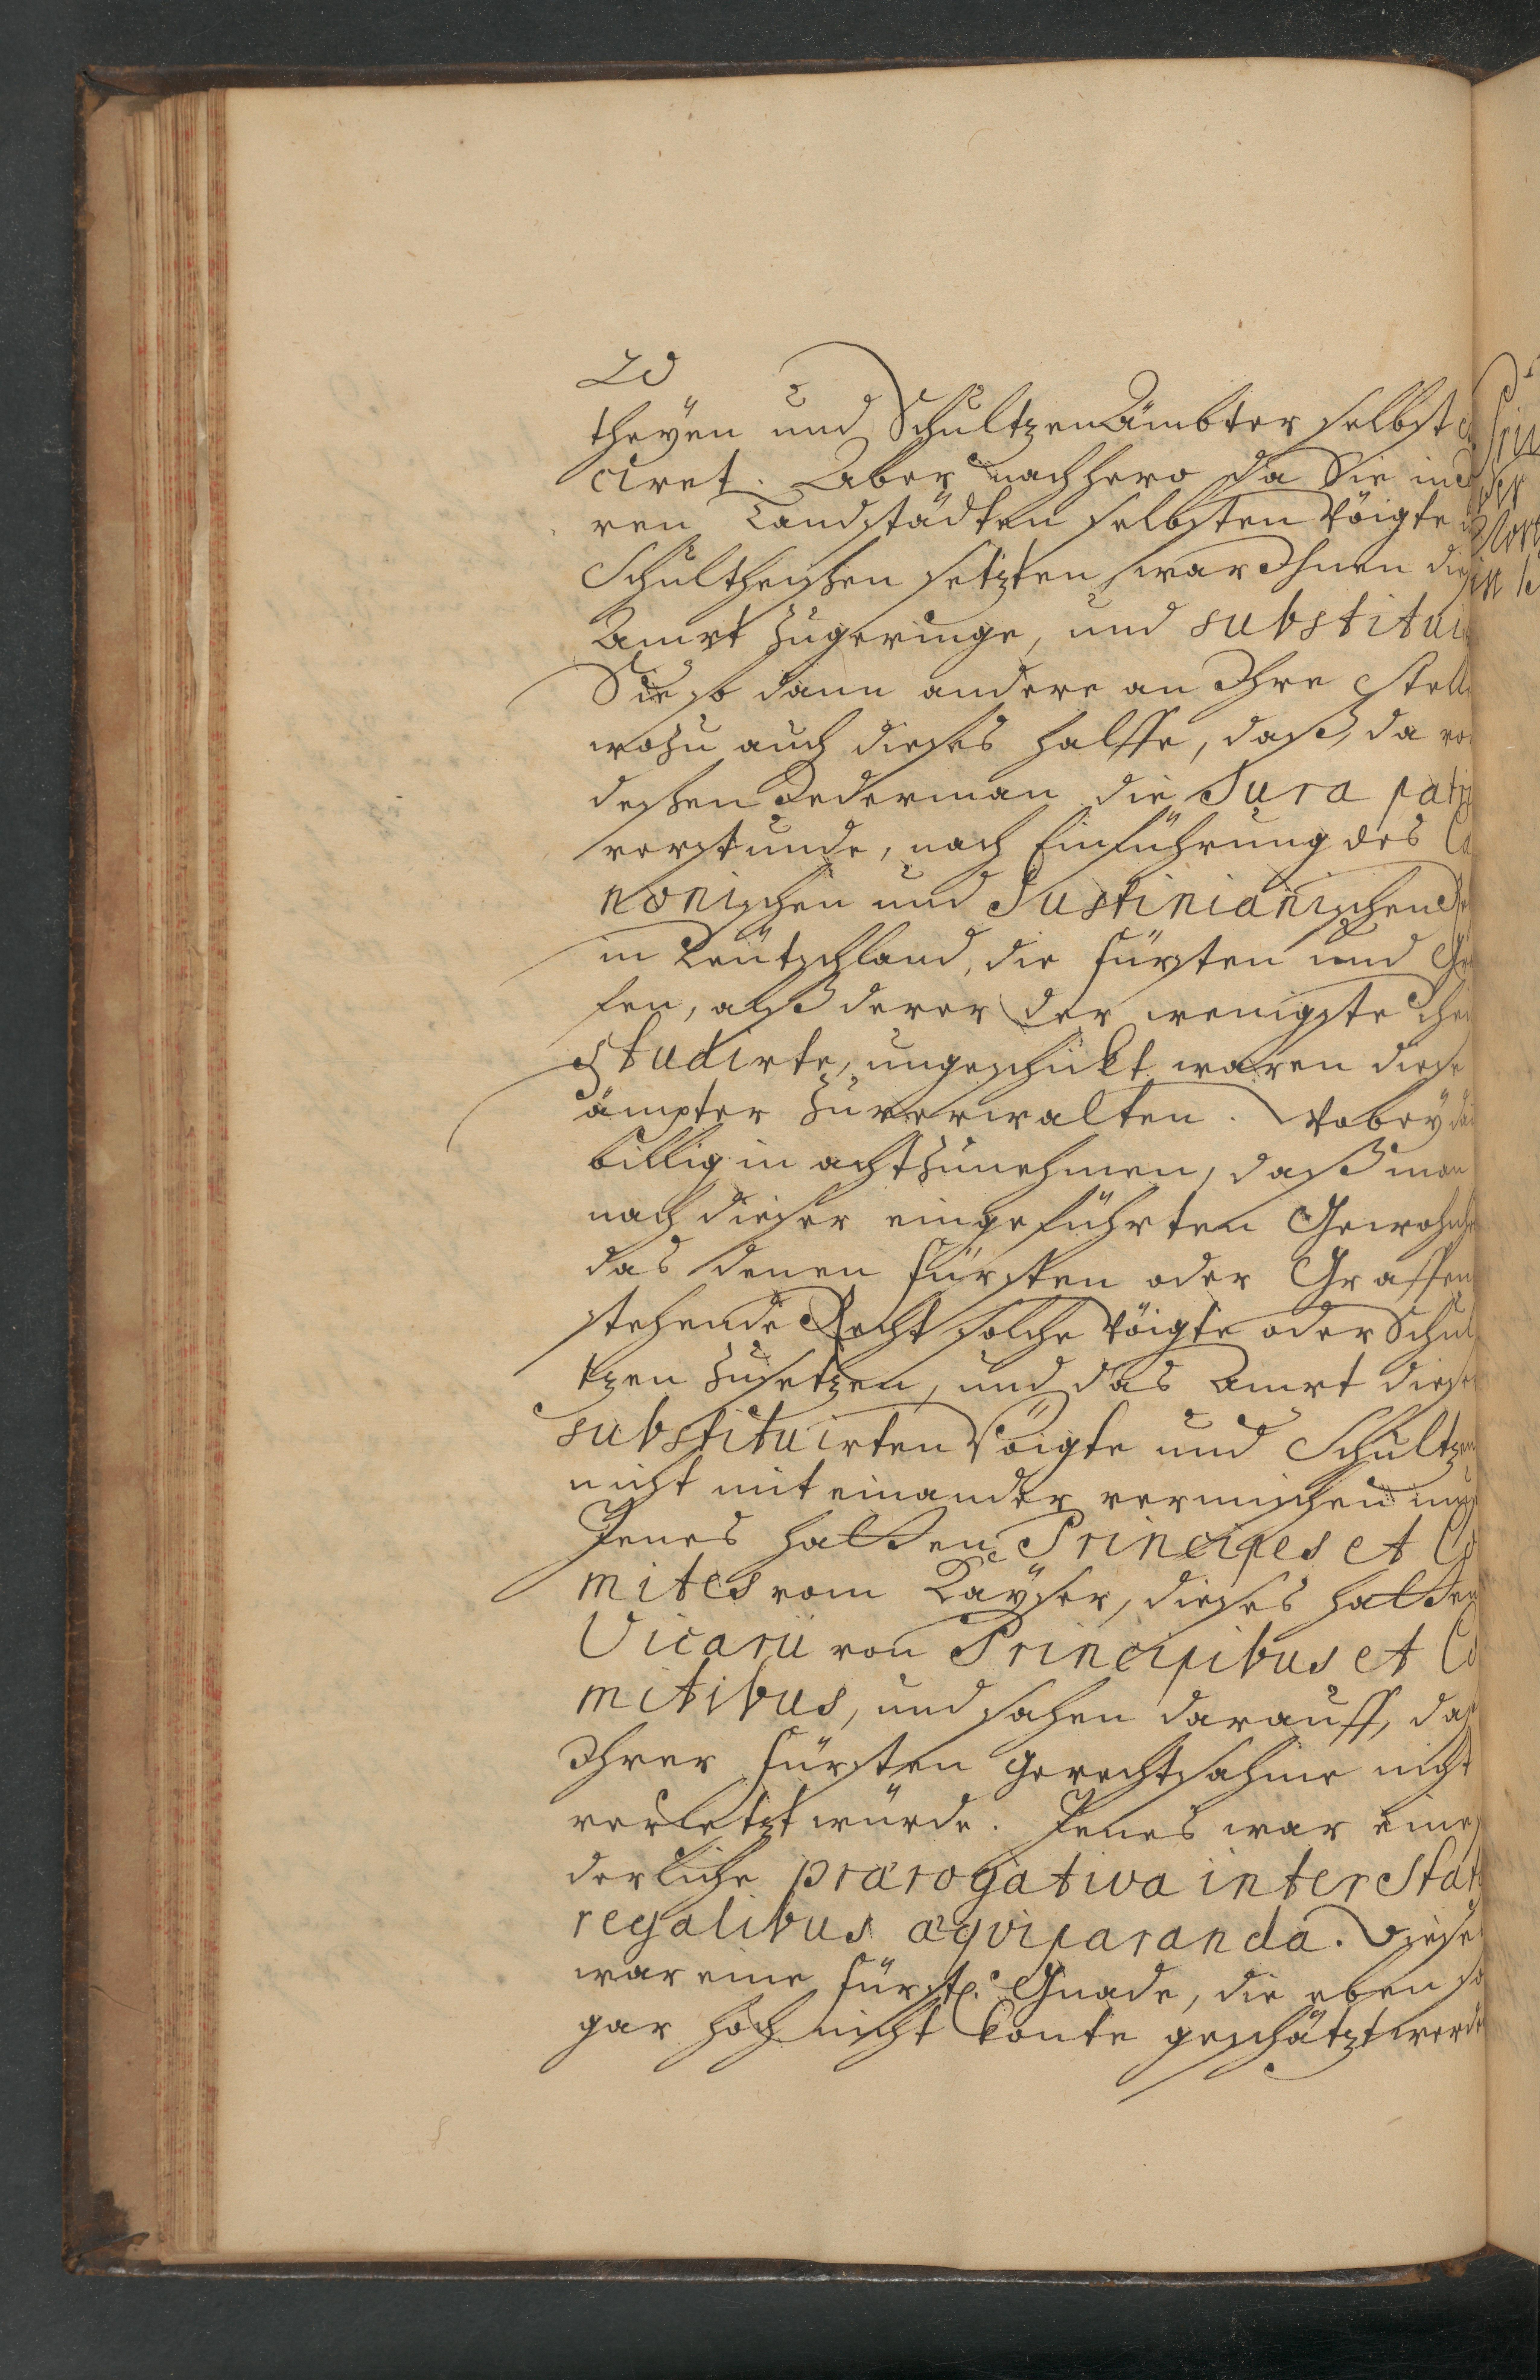 20
theyen und Schultzen Ämbter selbst
ciret. Aber nachhero da Sie in
ren Landstädten selbsten Vöigte
Schultheißen setzten, war Ihnen die
Ambt zugeringe, und substitui
Sie so dann andere an Ihre Stelle
wozu auch dieses halffe, daß, da vor
deßen Jederman die Jura patri
verstunde, nach Einführung des Ca
nonischen und Justinianischen
in Teutschland, die Fürsten und Gra
fen, alß derer der wenigste theil
studirte, ungeschickt waren diese
ämpter zuverwalten. Wobey
billig in acht zunehmen, daß man
nach dieser eingeführten Gewohnh
das denen Fürsten oder Graffen
stehende Recht solche Vöigte oder Schul
tzen zusetzen, und das Ambt dieser
substituirten Vöigte und Schultzen
nicht mit einander vermischen muß
Jenes hatten Principes et Co
mites vom Käyser, dieses hatten
Vicarii von Principibus et Co
mitibus, und sahen darauff, daß
Ihrer Fürsten Gerechtsahme nicht
verletzt würde. Jenes war eine
derliche prærogativa inter Stat
regalibus æqviparanda. Dieses
war eine fürstl. Gnade, die eben so
gar hoch nicht konte geschätzt werde